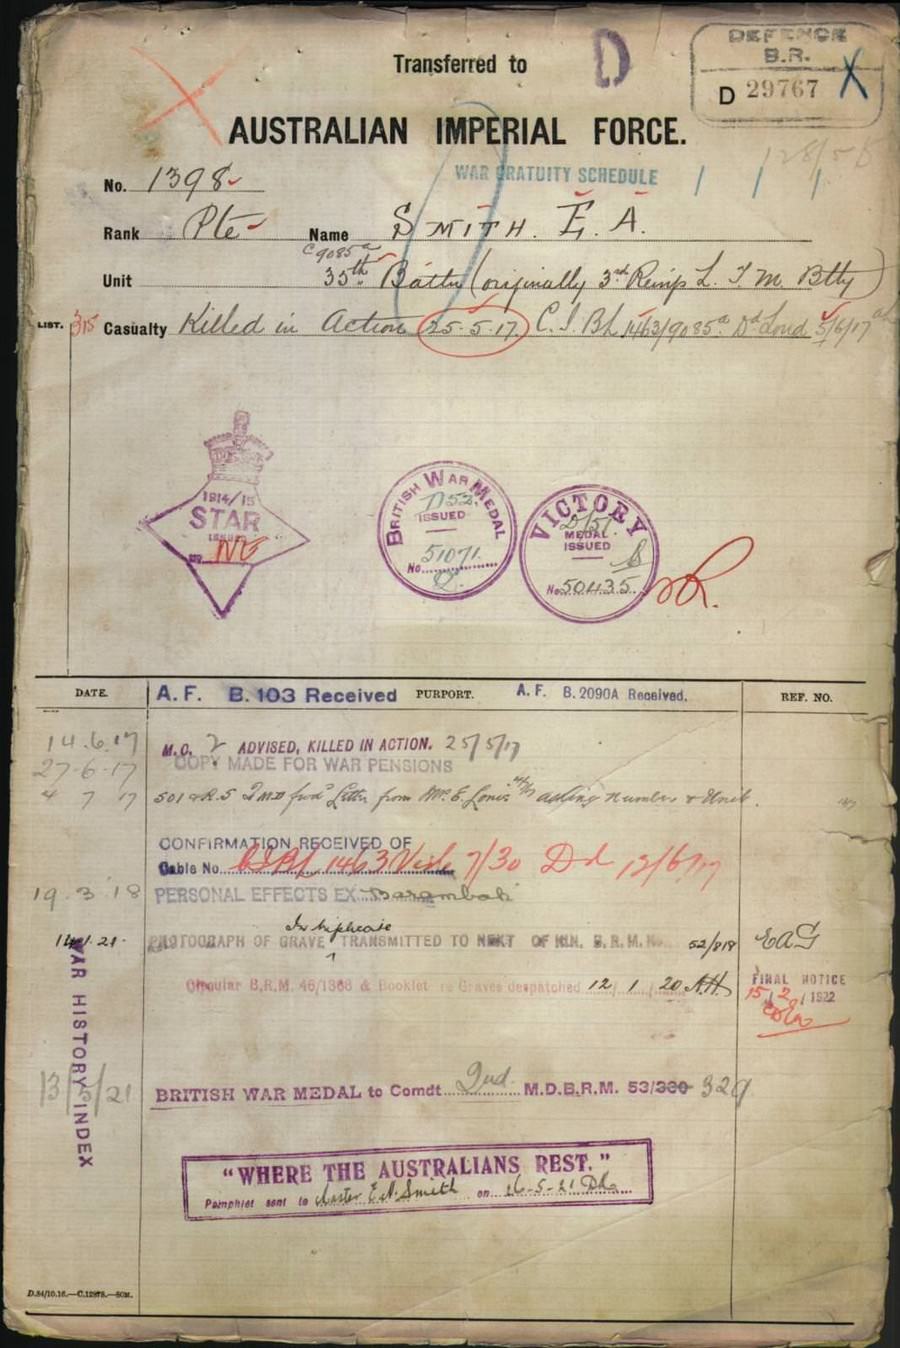 Transferred to
D
DEFENCE
B.R.
D 29767
AUSTRALIAN IMPERIAL FORCE.
WAR GRATUITY SCHEDULE
No. 1398
Rank Pte Name SMITH. E. A.
C 9085a
Unit 35th Battn (originally 3rd Reinfs L. T. M. Btty)
LIST. 315 Casualty Killed in Action 25.5.17. C.I. BL 1463/9085a Dd Lond 5/6/17
1914/15
STAR
ISSUED
BRITISH WAR MEDAL
ISSUED
No. 51071
VICTORY
MEDAL
ISSUED
No 50435
DATE. A.F. B.103 Received PURPORT. A.F. B.2090A Received. REF. NO.
14.6.17 M.C. 2 ADVISED, KILLED IN ACTION. 25/5/17
27-6-17 COPY MADE FOR WAR PENSIONS
4 7 17 Letter from Mrs E. asking number & Unit.
CONFIRMATION RECEIVED OF
Cable No. 1463 7/30 Dd 12/6/17
19.3.18 PERSONAL EFFECTS EX Barambah
In triplicate
14.1.21. PHOTOGRAPH OF GRAVE TRANSMITTED TO NEXT OF KIN. B.R.M. No. 52/818 EAG
Circular B.R.M. 46/1368 & Booklet re Graves despatched 12 1 20
FINAL NOTICE
15/2/1922
WAR HISTORY INDEX
13/5/21 BRITISH WAR MEDAL to Comdt. 2nd M.D.B.R.M. 53/330 329
"WHERE THE AUSTRALIANS REST."
Pamphlet sent to Master E A Smith on 16-5-21
D.84/10.16.—C.12878.—50M.